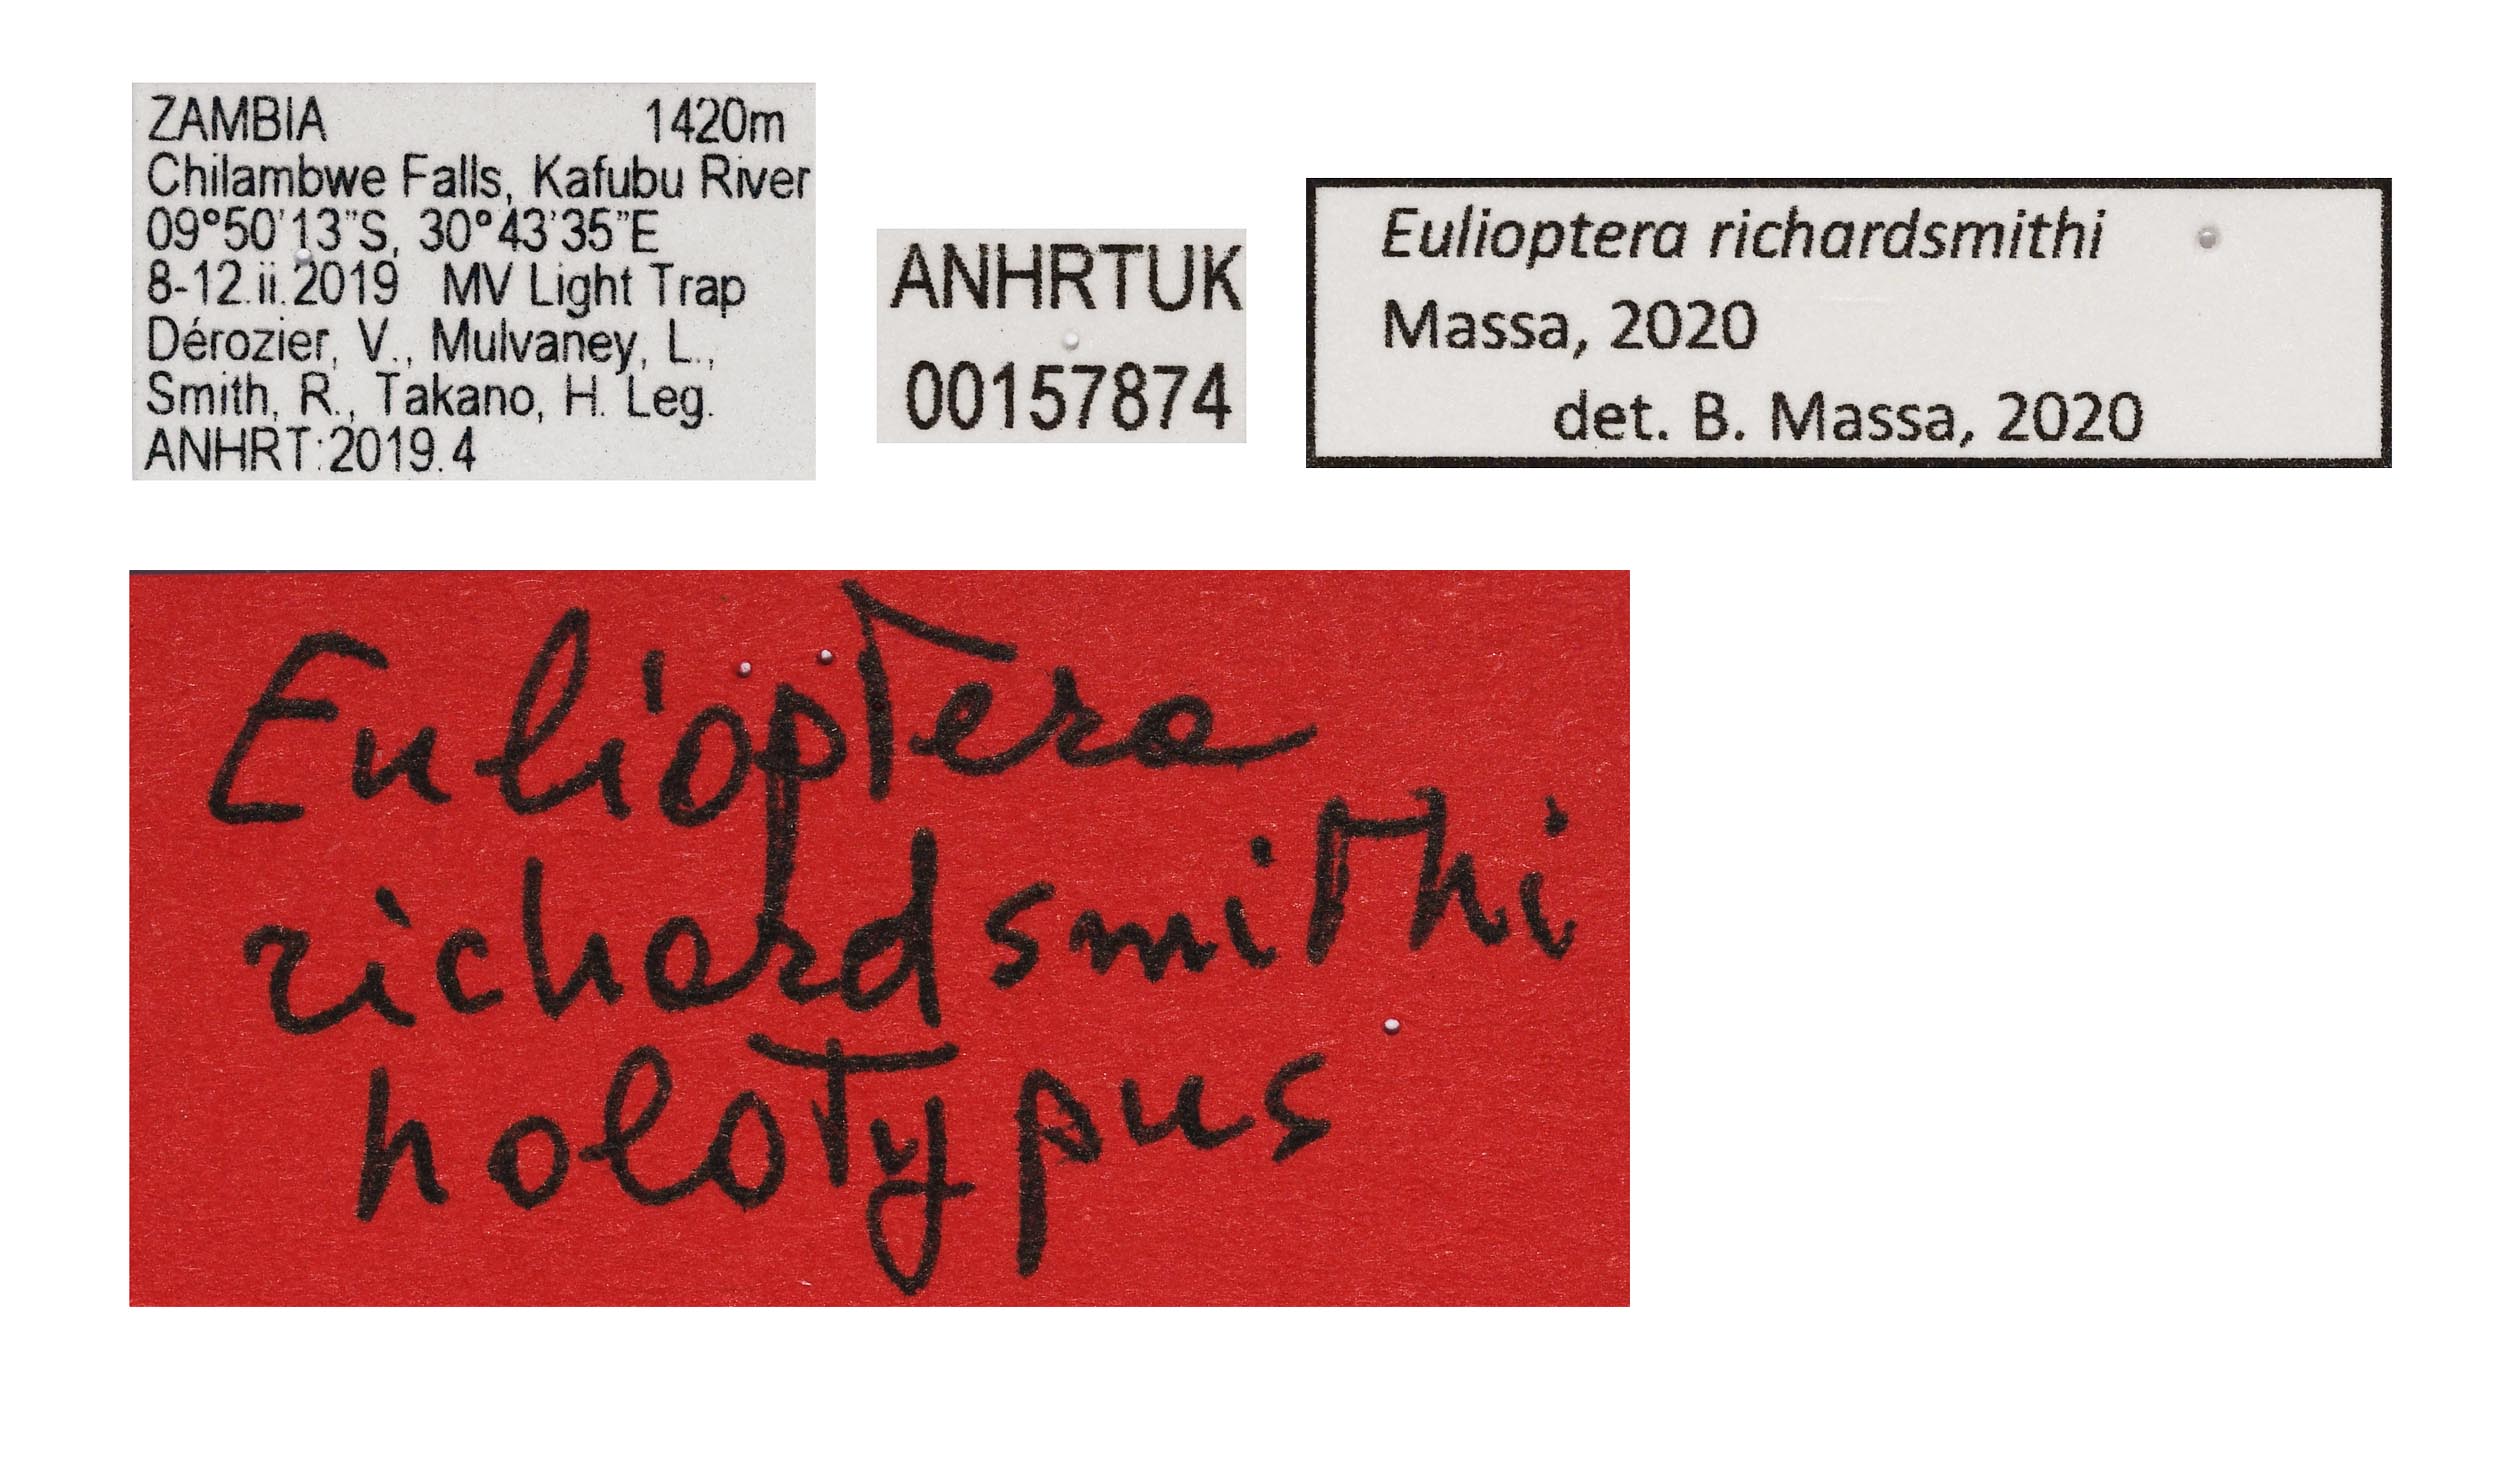 ZAMBIA 1420m
Chilambwe Falls, Kafubu River
09°50'13"S, 30°43'35"E
8-12.ii.2019 MV Light Trap
Dérozier, V., Mulvaney, L.,
Smith, R., Takano, H. Leg.
ANHRT:2019.4
ANHRTUK
00157874
Eulioptera richardsmithi
Massa, 2020
det. B. Massa, 2020
Eulioptera
richardsmithi
holotypus